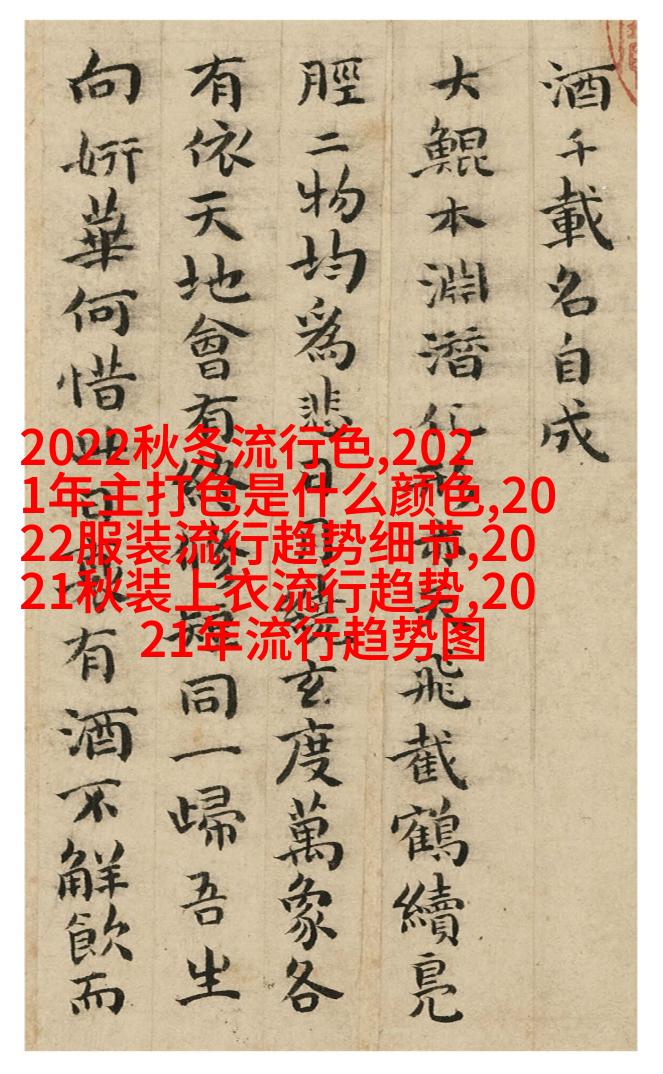 酒千載名自成
大鯤本淵潛化飛截鶴續鳧
脛二物均為悲日月玄度萬象各
有依天地會有終脩短同一歸吾生
向妍華何惜此日有酒不解飲而
2022秋冬流行色,202
1年主打色是什么颜色,20
22服装流行趋势细节,20
21秋装上衣流行趋势,20
21年流行趋势图